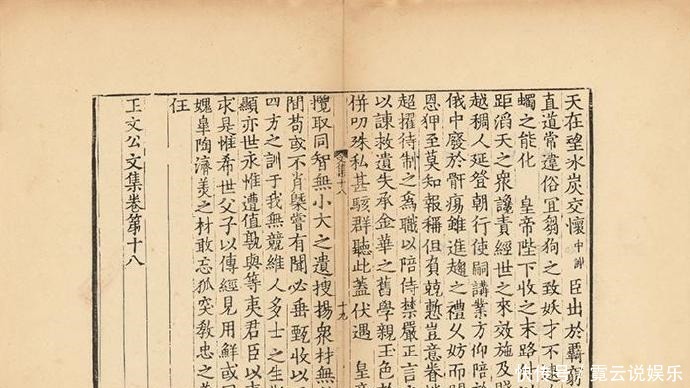 天在望氷炭交懷中謝臣出於覊窮
直道常違俗冝芻狗之致妖才不適
蠲之能化 皇帝陛下收之末路
距滔天之衆讒責經世之來效施及
越稠人延登朝行使嗣講業方仰陪
俄中廢於骭瘍雖進趨之禮乆妨而
恩狎至莫知報稱但負兢慙豈意眷
超擢待制之爲職以陪侍禁嚴正言
以諫救遺失承金華之舊學親玉色
併叨殊私甚駭群聽此蓋伏遇 皇
文集十八
十九
攬取同智無小大之遺搜揚衆材無
間苟或不肖槩嘗有聞必垂甄收以
四方之訓于我無競維人多士之生
顯亦世永惟遭值孰與等夷君臣以
求是惟希世父子以傳經見用鮮或
媿臯陶濟美之材敢忘孤突教忠之
任
王文公文集卷第十八
快传号/霓云说娱乐